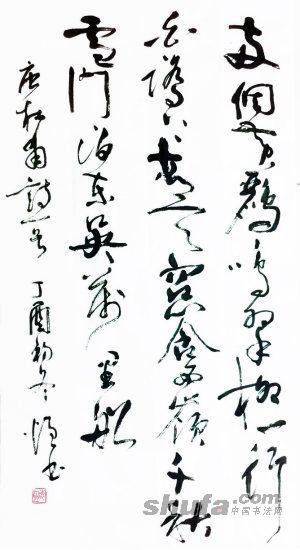 兩個黃鸝鳴翠柳一行
白鷺上青天窗含西嶺千秋
雪門泊東吳萬里船
唐杜甫詩一首 丁酉初冬 書
shufa.com
中国书法网